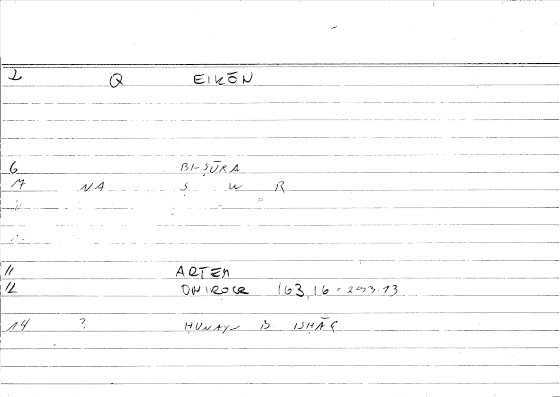 2 Q EIKŌN
6 BI-ṢŪRA
7 NA Ṣ W R
11 ARTEM
12 ONIROCR 163,16 = 293.13
14 ? ḤUNAYN B ISḤĀQ